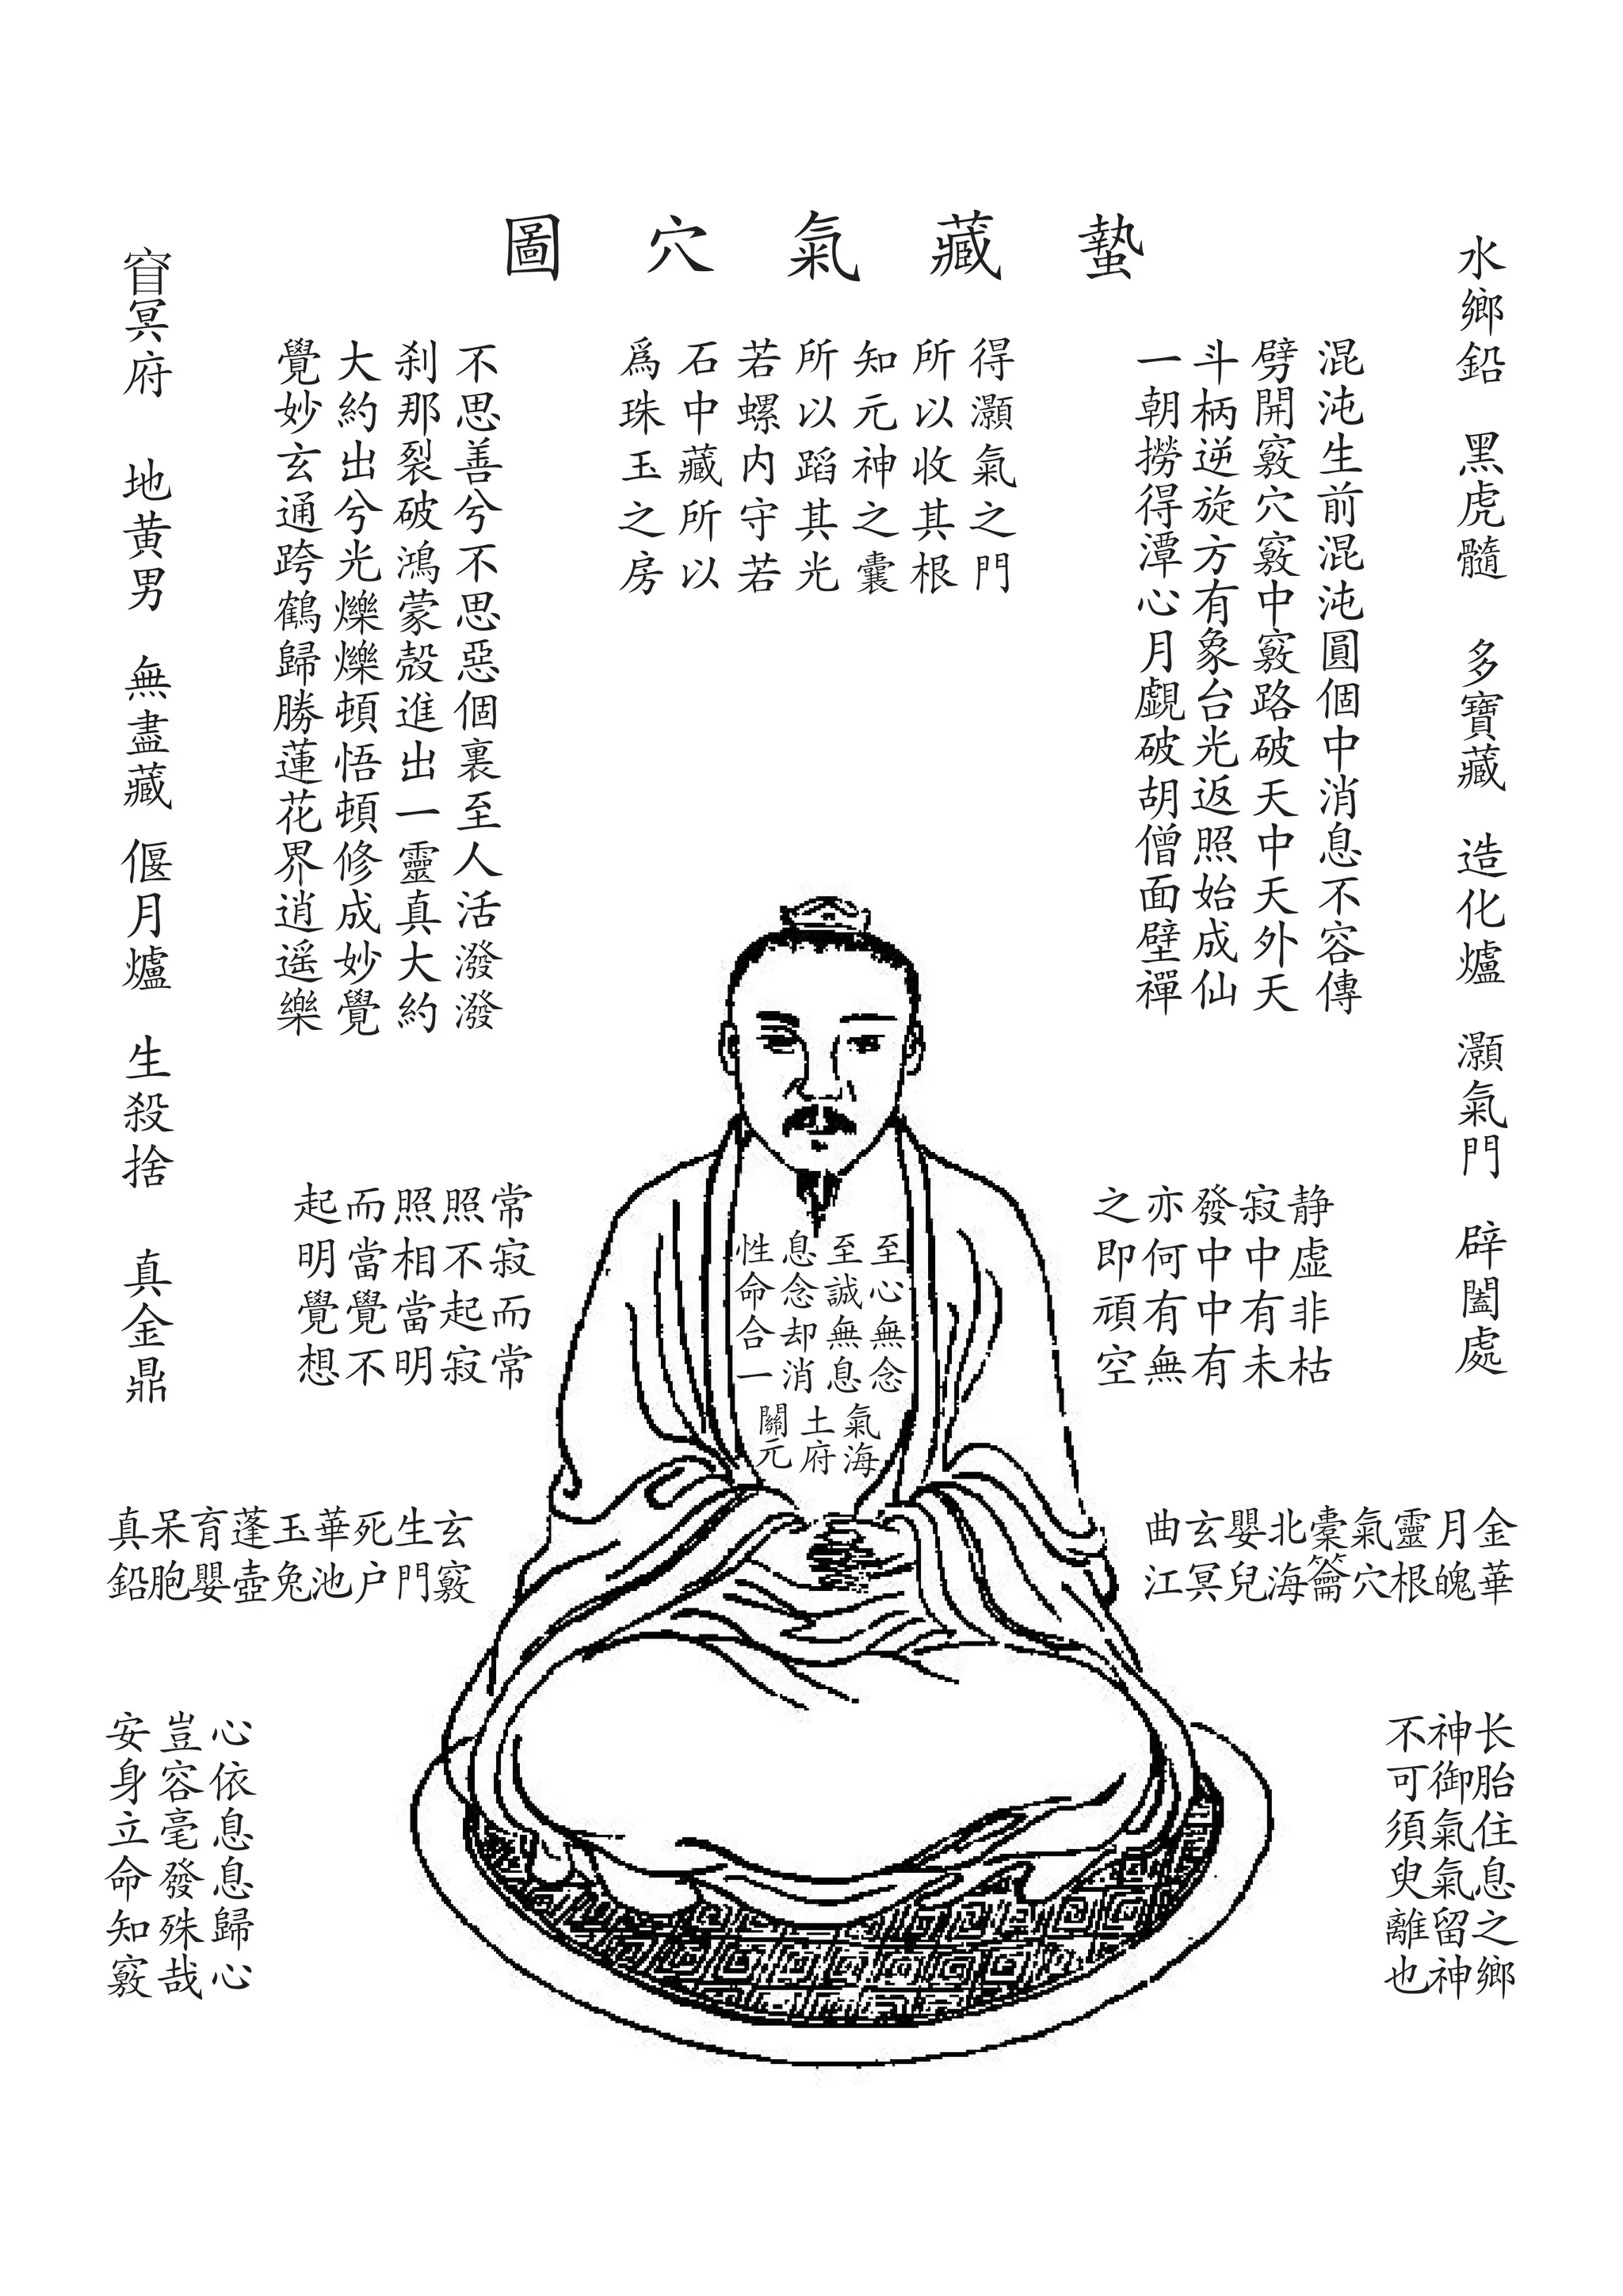 蟄藏氣穴圖
水鄉鉛 黑虎髓 多寶藏 造化爐 灝氣門 辟闔處
混沌生前混沌圓個中消息不容傳
劈開竅穴竅中竅路破天中天外天
斗柄逆旋方有象台光返照始成仙
一朝撈得潭心月覷破胡僧面壁禪
得灝氣之門
所以收其根
知元神之囊
所以蹈其光
若螺内守若
石中藏所以
爲珠玉之房
不思善兮不思惡個裏至人活潑潑
刹那裂破鴻蒙殼進出一靈真大約
大約出兮光爍爍頓悟頓修成妙覺
覺妙玄通跨鶴歸勝蓮花界逍遥樂
冥府 地黄男 無盡藏 偃月爐 生殺捨 真金鼎
静虚非枯
寂中有未
發中中有
亦何有無
之即頑空
至心無念
至誠無息
息念却消
性命合一
氣海
土府
關元
常寂而常
照不起寂
照相當明
而當覺不
起明覺想
金華
月魄
靈根
氣穴
橐籥
北海
嬰兒
玄冥
曲江
玄竅
生門
死户
華池
玉兔
蓬壺
育嬰
呆胞
真鉛
长胎住息之鄉
神御氣氣留神
不可須臾離也
心依息息歸心
豈容毫發殊哉
安身立命知竅